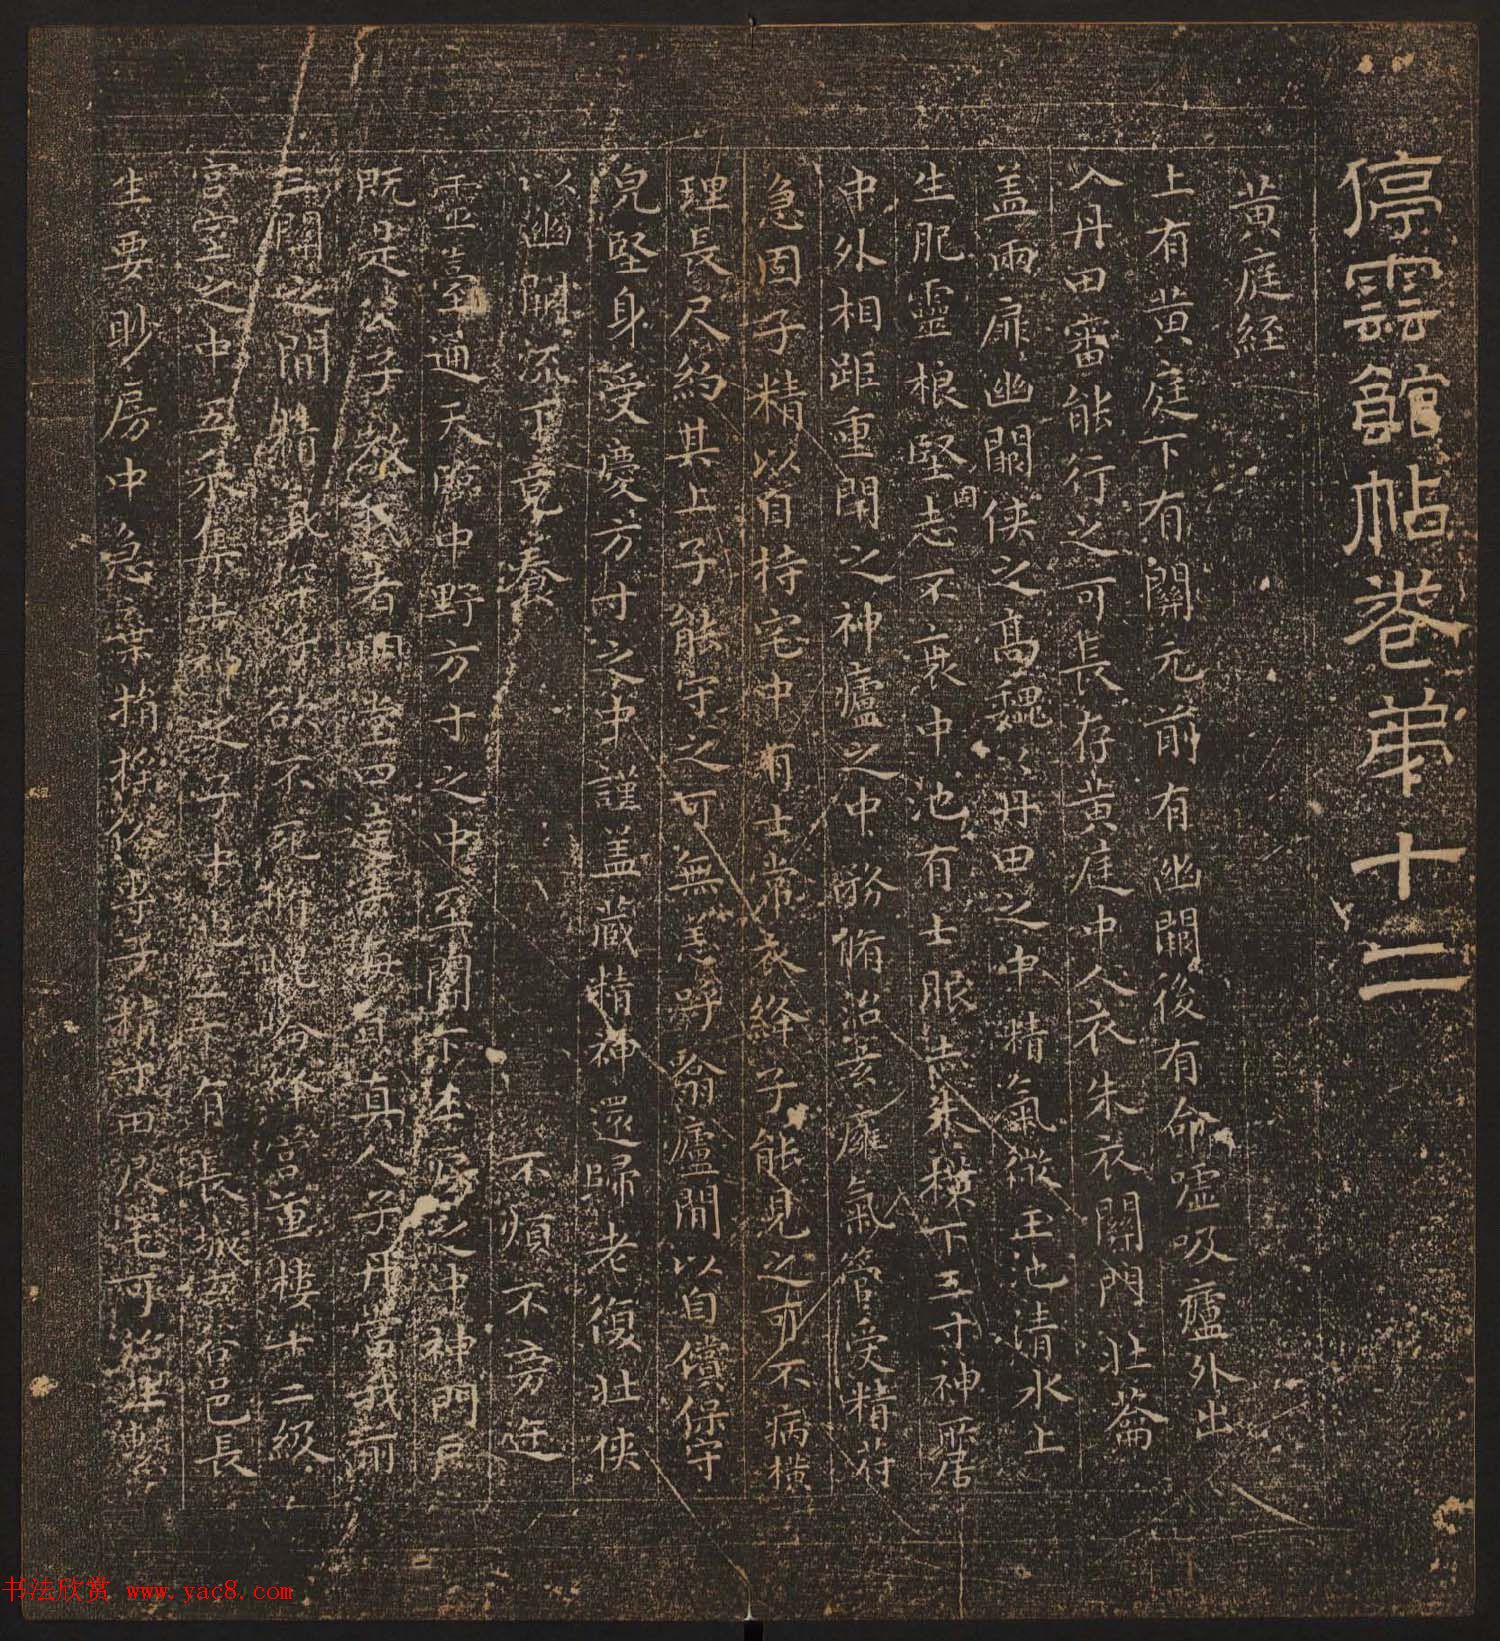 停雲館帖卷第十二
黃庭経
上有黃庭下有關元前有幽闕後有命噓吸廬外出
入丹田審能行之可長存黃庭中人衣朱衣關門壯蘥
盖兩扉幽闕侠之高魏丹田之中精氣微玉池清水上
生肥靈根堅固志不衰中池有士服赤朱橫下三寸神所居
中外相距重閉之神廬之中務脩治玄廱氣管受精符
急固子精以自持宅中有士常衣絳子能見之可不病橫
理長尺約其上子能守之可無恙呼翕廬間以自償保守
皃堅身受慶方寸之中謹盖藏精神還歸老復壯侠
以幽闕流下竟養 不煩不旁迕
靈臺通天臨中野方寸之中至關下玉房之中神門戶
既是公子教我者明堂四達法海員真人子丹當我前
三關之間精氣深子欲不死脩崑崙絳宮重樓十二級
宮室之中五采集赤神之子中池立下有長城玄谷邑長
生要眇房中急棄捐搖俗專子精寸田尺宅可治生繫
书法欣赏 www.yac8.com